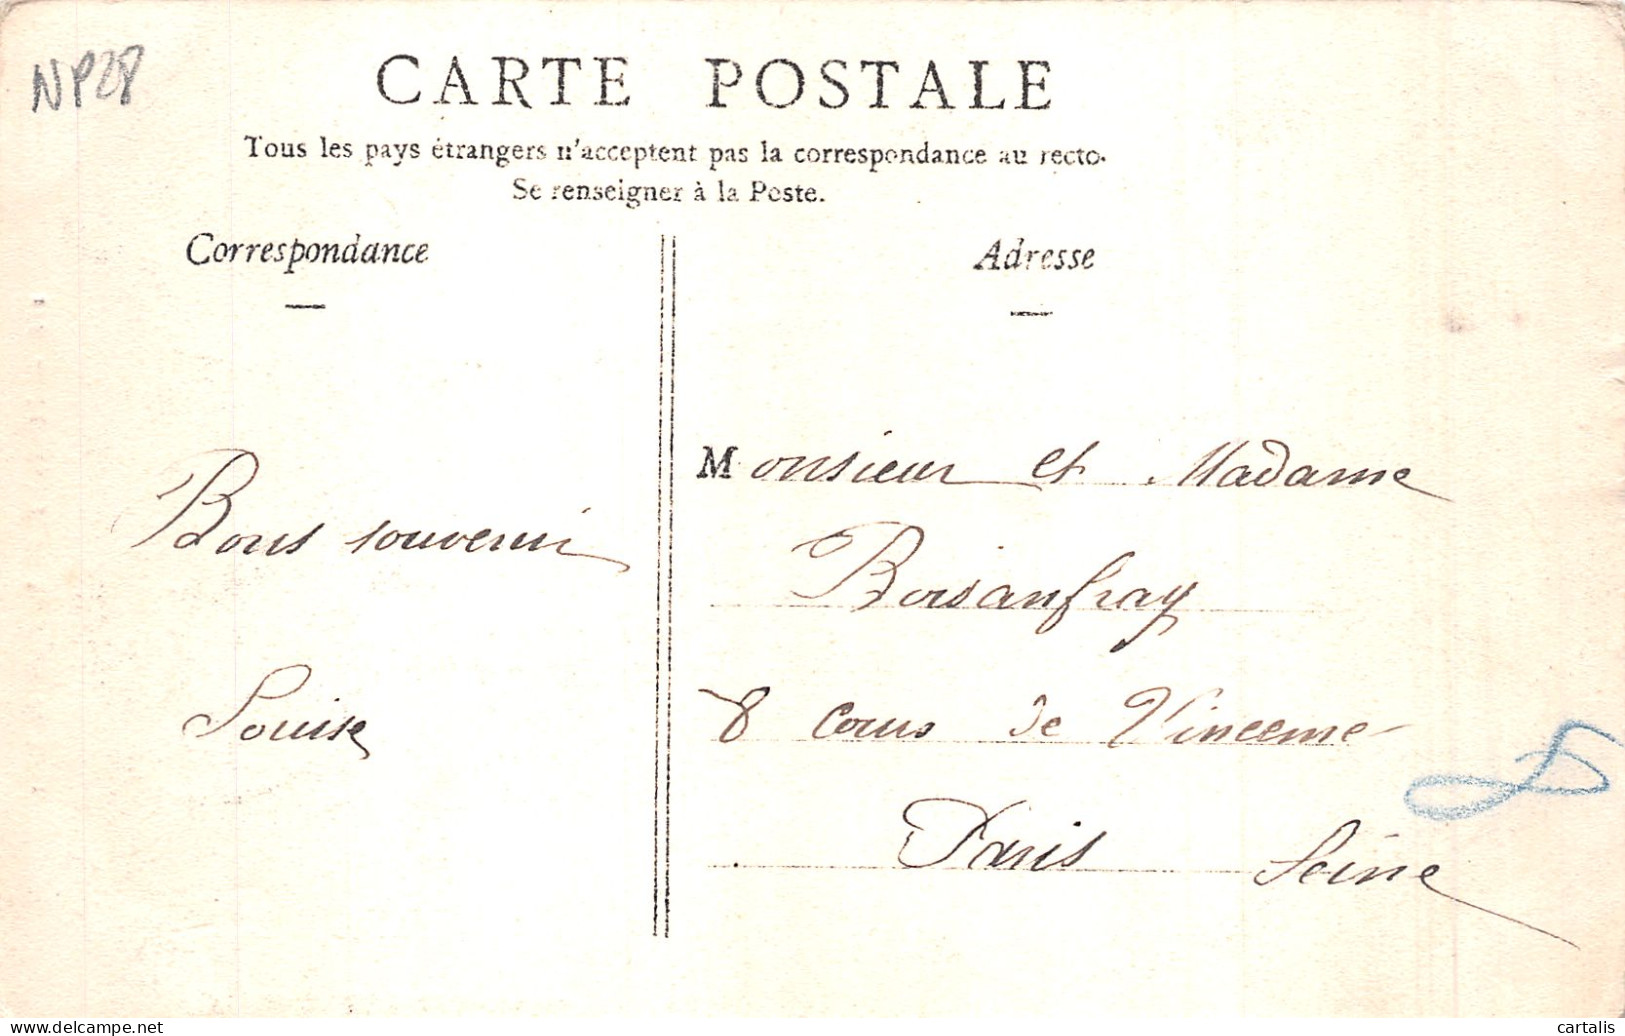 NP28
CARTE POSTALE
Tous les pays étrangers n'acceptent pas la correspondance au recto.
Se renseigner à la Poste.
Correspondance
Adresse
Bons souvenir
Louise
Monsieur et Madame
Boisanfray
8 cours de Vincenne
Paris Seine
www.delcampe.net
cartalis